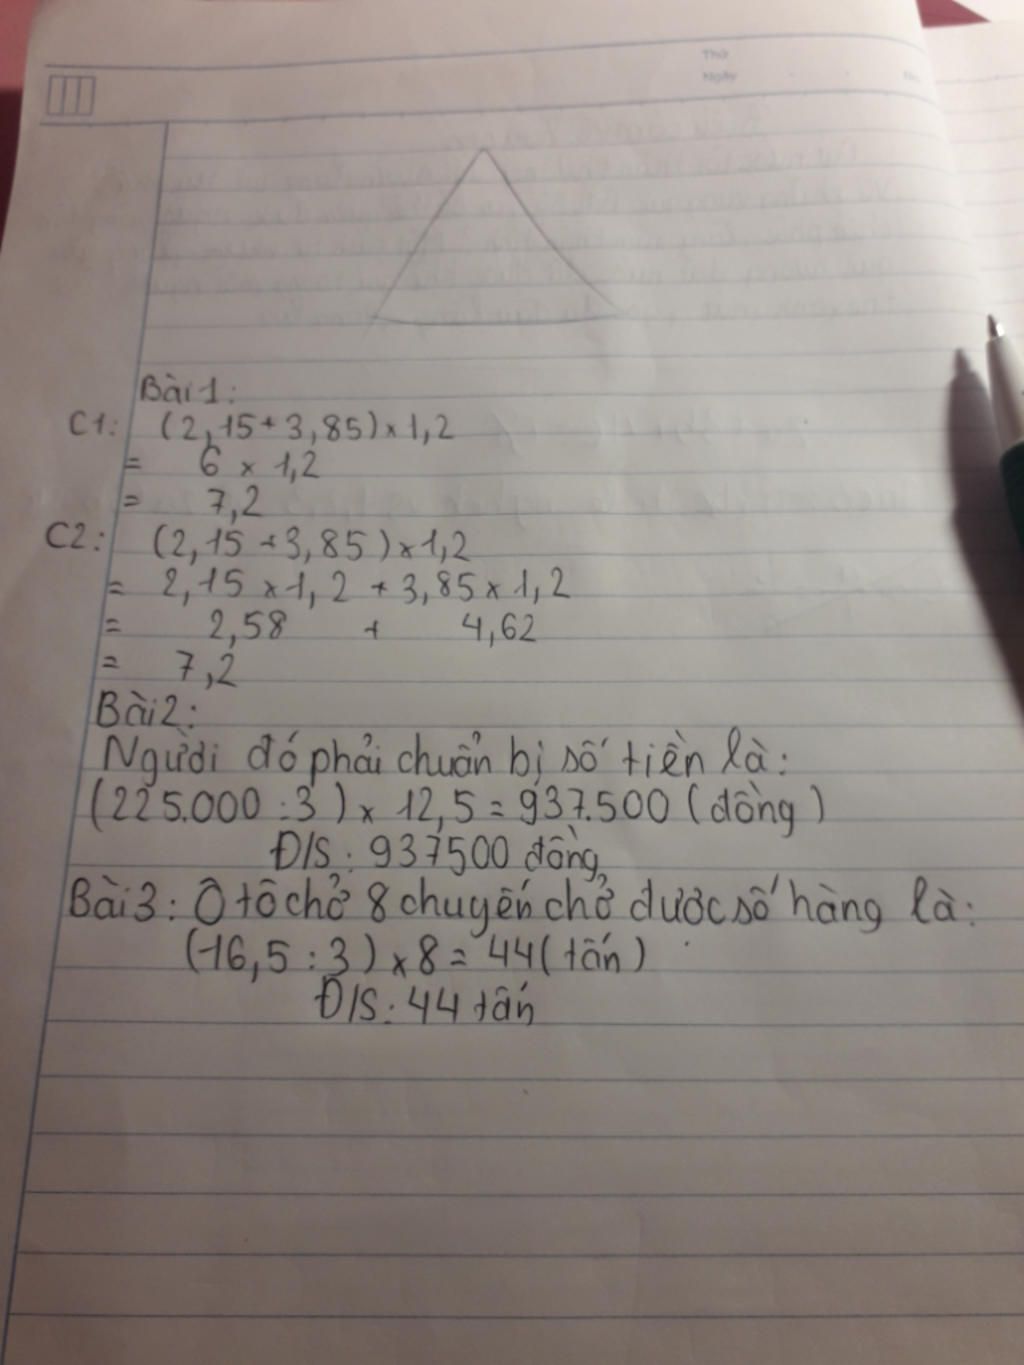 Thứ
Ngày
No.
Bài 1:
C1: (2,15+3,85)×1,2
= 6 × 1,2
= 7,2
C2: (2,15+3,85)×1,2
= 2,15×1,2 + 3,85×1,2
= 2,58 + 4,62
= 7,2
Bài 2:
Người đó phải chuẩn bị số tiền là:
(225.000:3)×12,5=937.500(đồng)
Đ/S: 937500 đồng
Bài 3: Ô tô chở 8 chuyến chở được số hàng là:
(16,5:3)×8=44(tấn)
Đ/S: 44 tấn